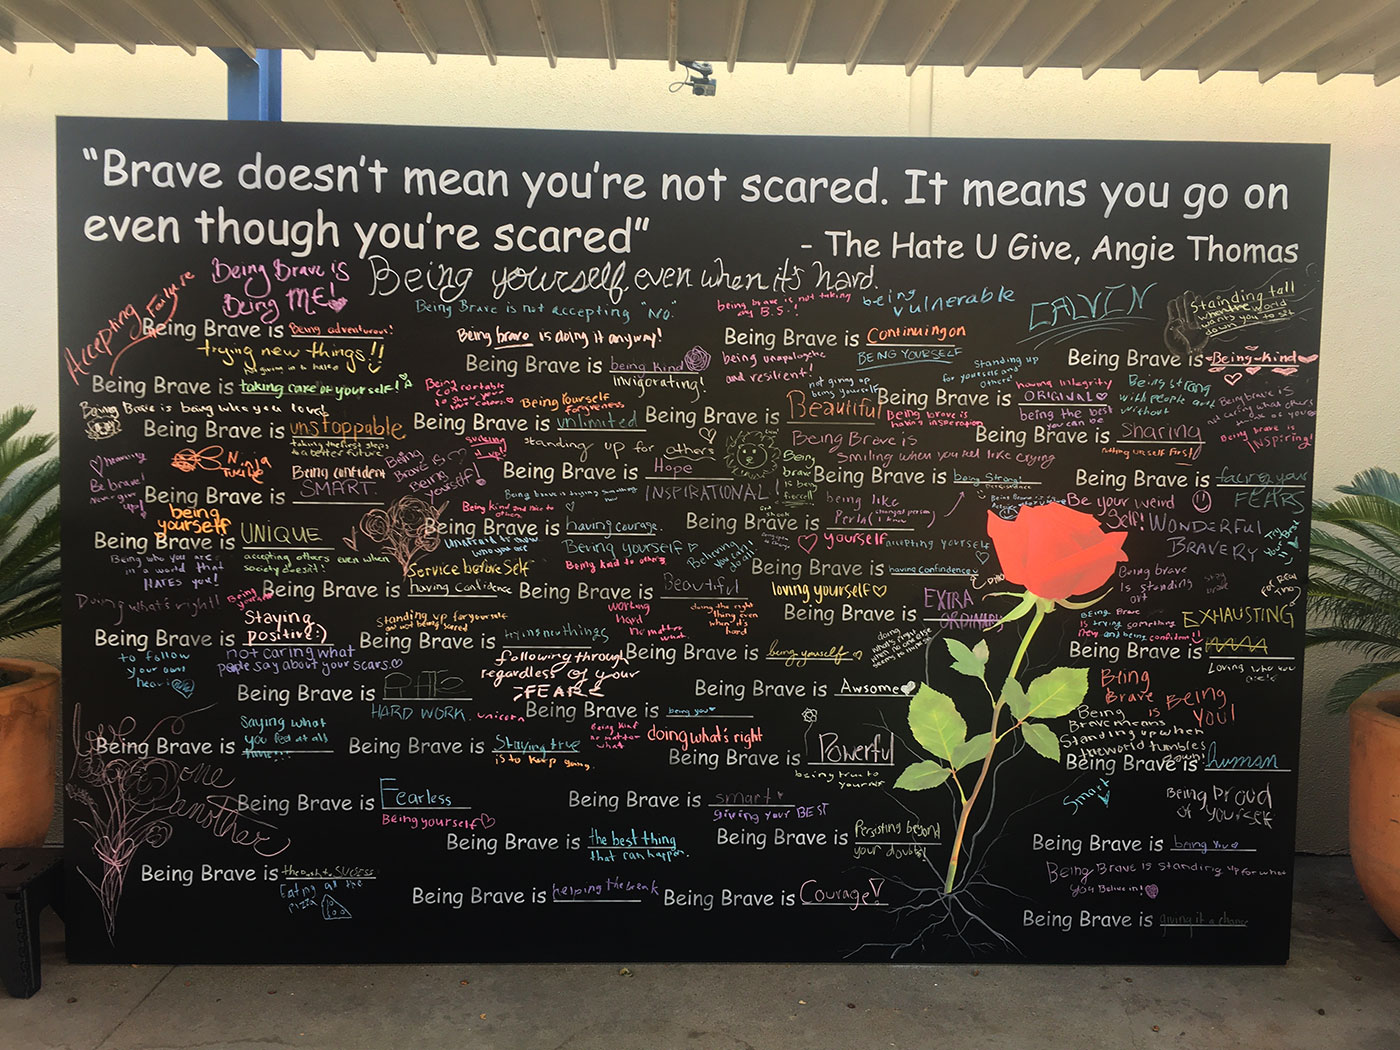 “Brave doesn't mean you're not scared. It means you go on
even though you're scared”
- The Hate U Give, Angie Thomas
Being Brave is
Being ME!
Being yourself even when it's hard.
Being Brave is not accepting "NO."
being brave is not taking
any B.S.!
being
vulnerable
CALVIN
Standing tall
when the world
wants you to sit
down
Accepting Failure
Being Brave is Being adventurous!
Being brave is doing it anyway!
Being Brave is Continuing on
trying new things!!
Being Brave is being kind
being unapologetic
and resilient!
BEING YOURSELF
Standing up
for yourself and
others!
Being Brave is Being kind
Being Brave is taking care of yourself!
Invigorating!
not giving up
being yourself
having integrity
Being Brave is ORIGINAL
being the best
you can be
Being strong
with people and
without
Being Brave is being who you
Being Yourself
forgiveness
Being Brave is Beautiful
being brave is
having inspiration
Being brave is
INSPIRING!
Being Brave is unstoppable
taking the first steps
to a better future
Being Brave is unlimited
Being Brave is sharing
putting urself first
standing up for others
Being Brave is
smiling when you feel like crying
Ninja
Being confident
Being
Brave is
Being
yourself!
Being Brave is Hope
Being
brave
is being
fierce!!
Being Brave is being strong!
Being Brave is facing your
FEARS
Be brave!
Being Brave is SMART.
INSPIRATIONAL!
being like
Perla
Be your weird
self!
WONDERFUL
BRAVERY
being
yourself
Being kind and nice to
others
Being Brave is UNIQUE
Being Brave is having courage.
Being Brave is
yourself
accepting yourself
Being who you are
in a world that
HATES you!
accepting others even when
society doesn't!
Service before Self
Unafraid to show
who you are
Being yourself
Being kind to others
Believing
you can
do it!
Being Brave is having confidence
Being brave
is standing
out
Doing what's right!
Being Brave is having confidence
Being Brave is Beautiful
loving yourself
Being Brave is EXTRA
ORDINARY
Staying
Being Brave is positive :)
Standing up for yourself
and not being scared
Being Brave is trying new things
working
hard
no matter
what
doing the right
thing even
when it's
hard
Being Brave
is trying something
new and being confident!!
EXHAUSTING
to follow
your own
heart
not caring what
people say about your scars.
following through
regardless of your
FEARS
Being Brave is being yourself
doing
what's right
when no one else
seems to think so
Being Brave is
Loving who you
are!
Being Brave is
HARD WORK.
unicorn
Being Brave is being you
Being Brave is Awsome
Being
Brave
is
Being
You!
Being
Brave means
Standing up when
the world tumbles
down!
Love one another
saying what
Being Brave is you feel at all
times!!!
Being Brave is Staying true
is to keep going.
Being kind
no matter
what
doing what's right
Being Brave is Powerful
being true to
yourself
Being Brave is human
Smart
Being Brave is Fearless
Being yourself
Being Brave is smart
giving your BEST
Being proud
of yourself
Being Brave is the best thing
that can happen.
Being Brave is Persisting beyond
your doubts!
Being Brave is being you
Being Brave is the path to success
Eating all the
pizza
Being Brave is helping the weak
Being Brave is Courage!
Being Brave is standing up for what
you Believe in!
Being Brave is giving it a chance